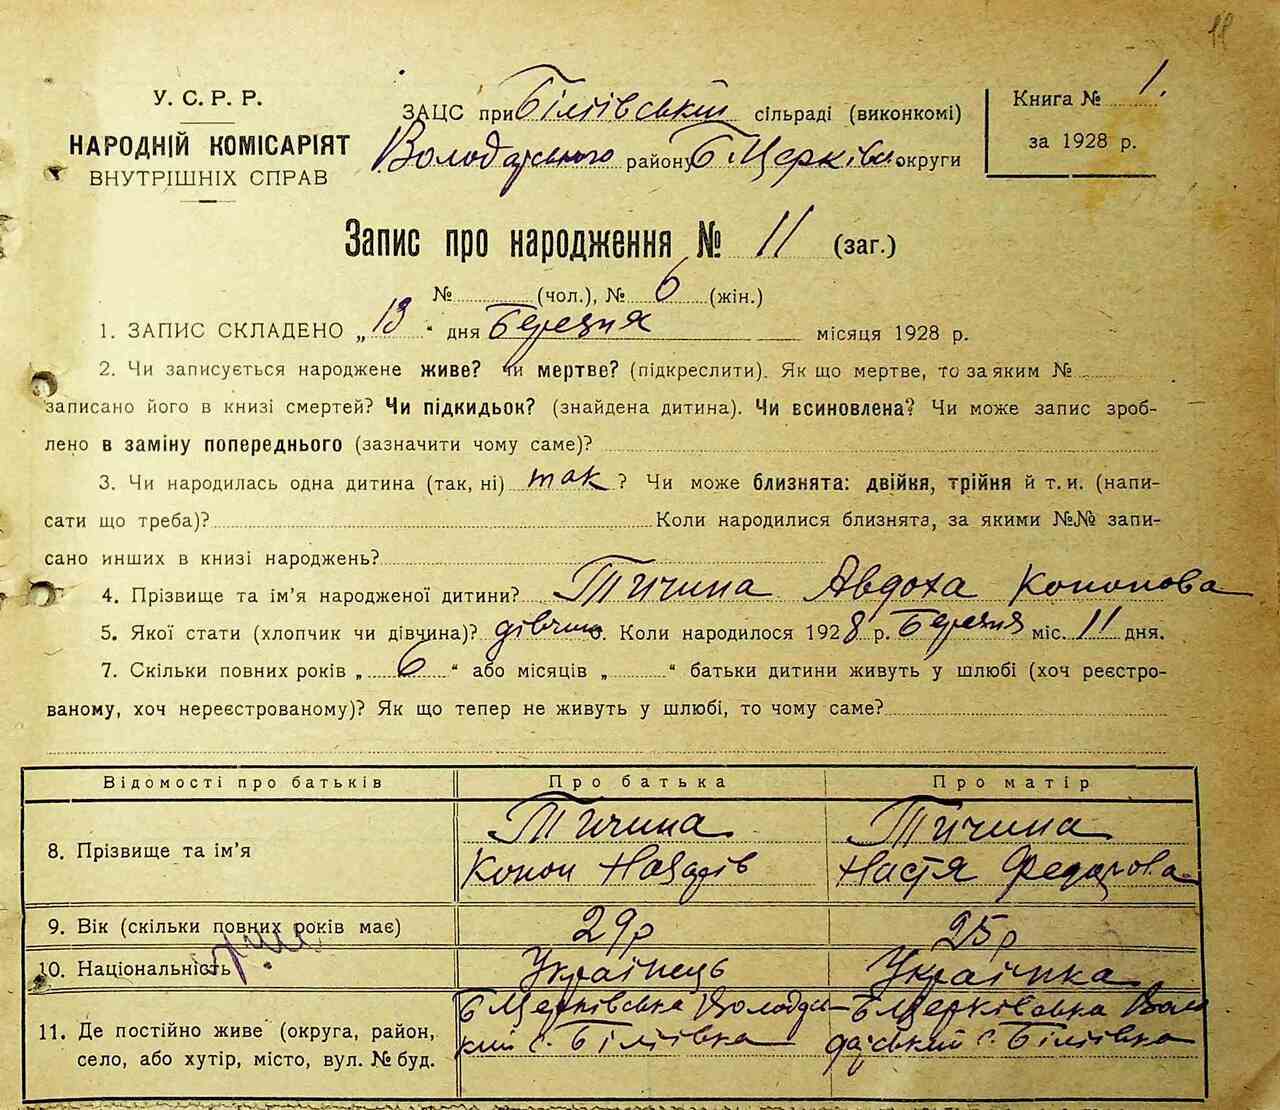 18
У. С. Р. Р.
НАРОДНІЙ КОМІСАРІЯТ
ВНУТРІШНІХ СПРАВ
ЗАЦС при Біліївський сільраді (виконкомі)
Володарського району Б Церківськ округи
Книга № 1.
за 1928 р.
Запис про народження № 11 (заг.)
№ (чол.), № 6 (жін.)
1. ЗАПИС СКЛАДЕНО „ 13 “ дня Березня місяця 1928 р.
2. Чи записується народжене живе? чи мертве? (підкреслити). Як що мертве, то за яким №
записано його в книзі смертей? Чи підкидьок? (знайдена дитина). Чи всиновлена? Чи може запис зроб-
лено в заміну попереднього (зазначити чому саме)?
3. Чи народилась одна дитина (так, ні) так ? Чи може близнята: двійня, трійня й т. и. (напи-
сати що треба)? Коли народилися близнята, за якими №№ запи-
сано инших в книзі народжень?
4. Прізвище та ім’я народженої дитини? Тичина Авдоха Кононова
5. Якої стати (хлопчик чи дівчина)? дівчина. Коли народилося 1928 р. Березня міс. 11 дня.
7. Скільки повних років „ 6 “ або місяців „ “ батьки дитини живуть у шлюбі (хоч реєстро-
ваному, хоч нереєстрованому)? Як що тепер не живуть у шлюбі, то чому саме?
Відомості про батьків Про батька Про матір
8. Прізвище та ім’я
Тичина
Конон
Тичина
Настя Федорова
9. Вік (скільки повних років має) 29р 25р
10. Національність Українець Українка
11. Де постійно живе (округа, район,
село, або хутір, місто, вул. № буд.
Б Церківська Володар-
кий с. Біліївка
Б Церківська Воло
дарський с. Біліївка